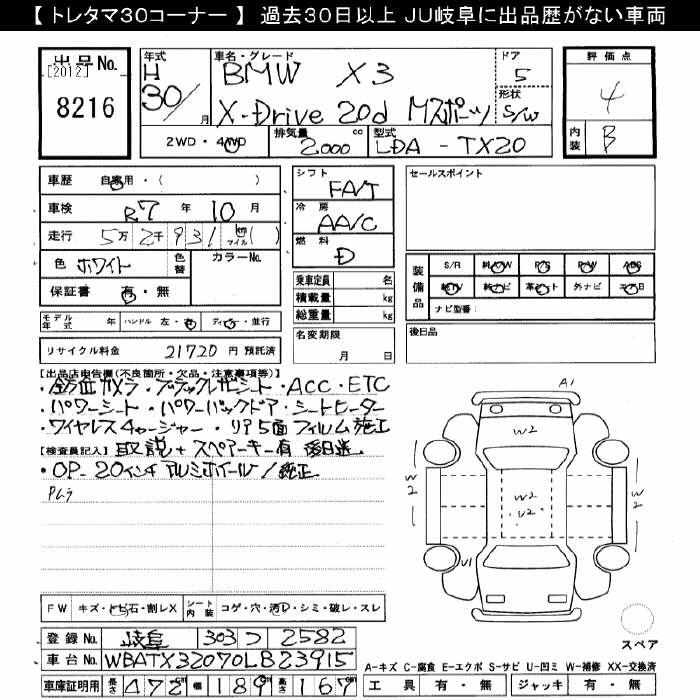 【 トレタマ30コーナー 】 過去30日以上 JU岐阜に出品歴がない車両
出品No.
[2012]
8216
年式
H
30/
月
車名・グレード
BMW X3
X-Drive 20d Mスポーツ
ドア
5
形状
S/W
評価点
4
内装
B
2WD・4WD
排気量
2000 cc
型式
LDA - TX20
車歴 自家用・( )
車検 R7 年 10 月
走行 5万 2千 931 km マイル ( )
色 ホワイト
色替
カラーNo.
保証書 有・無
シフト
FA/T
冷房
AA/C
燃料
D
セールスポイント
乗車定員 名
積載量 kg
総重量 kg
名変期限
月 日
装備品
S/R 純AW P/S P/W ABS
純TV 純ナビ 革シート 外ナビ エアB
ナビ型番:
後日品
モデル年式 年 ハンドル 左・右 ディーラー・並行
リサイクル料金 21720 円 預託済
[出品店申告欄(不良箇所・欠品・注意事項等)]
・全方位カメラ・ブラックレザーシート・ACC・ETC
・パワーシート・パワーバックドア・シートヒーター
・ワイヤレスチャージャー・リア5面フィルム施工
[検査員記入] 取説+スペアーキー有 後日送
・OP-20インチアルミホイール/純正
A1
W2
W2
W2
U2
W2
U1
スペア
FW キズ・トビ石・割レX シート内装 コゲ・穴・汚レ・シミ・破レ・スレ
登録No. 岐阜 303 つ 2582
車台No. WBATX32070LB23915
車庫証明用 長さ 472 cm 幅 189 cm 高さ 167 cm
A-キズ C-腐食 E-エクボ S-サビ U-凹ミ W-補修 XX-交換済
工具 有・無 ジャッキ 有・無